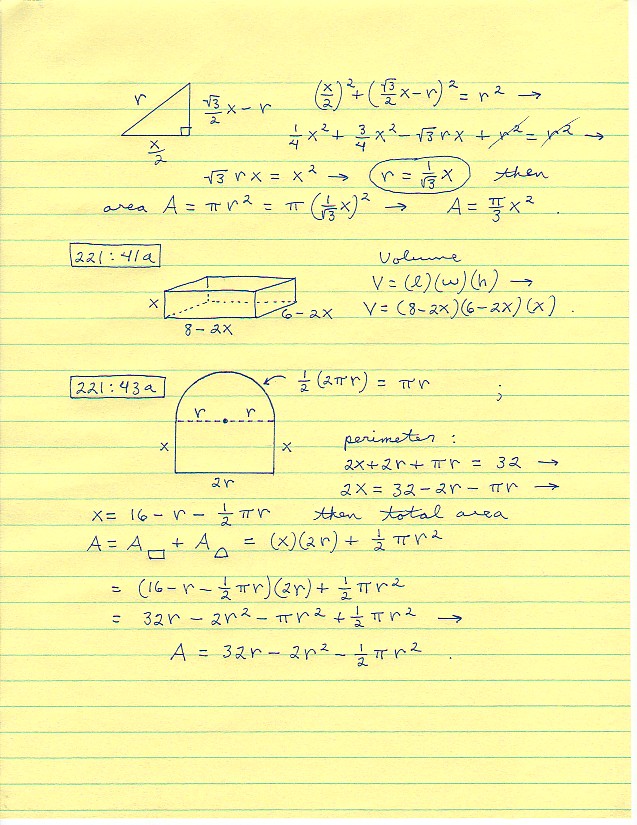 r √3/2 x - r (x/2)² + (√3/2 x - r)² = r² →
x/2 1/4 x² + 3/4 x² - √3 r x + r² = r² →
√3 r x = x² → r = 1/√3 x then
area A = π r² = π (1/√3 x)² → A = π/3 x² .
221 : 41a
Volume
x V = (l)(w)(h) →
6 - 2x V = (8 - 2x)(6 - 2x)(x) .
8 - 2x
221 : 43a 1/2 (2πr) = πr ;
r r
x x perimeter :
2x + 2r + πr = 32 →
2r 2x = 32 - 2r - πr →
x = 16 - r - 1/2 πr then total area
A = A□ + A⌓ = (x)(2r) + 1/2 πr²
= (16 - r - 1/2 πr)(2r) + 1/2 πr²
= 32r - 2r² - πr² + 1/2 πr² →
A = 32r - 2r² - 1/2 πr² .